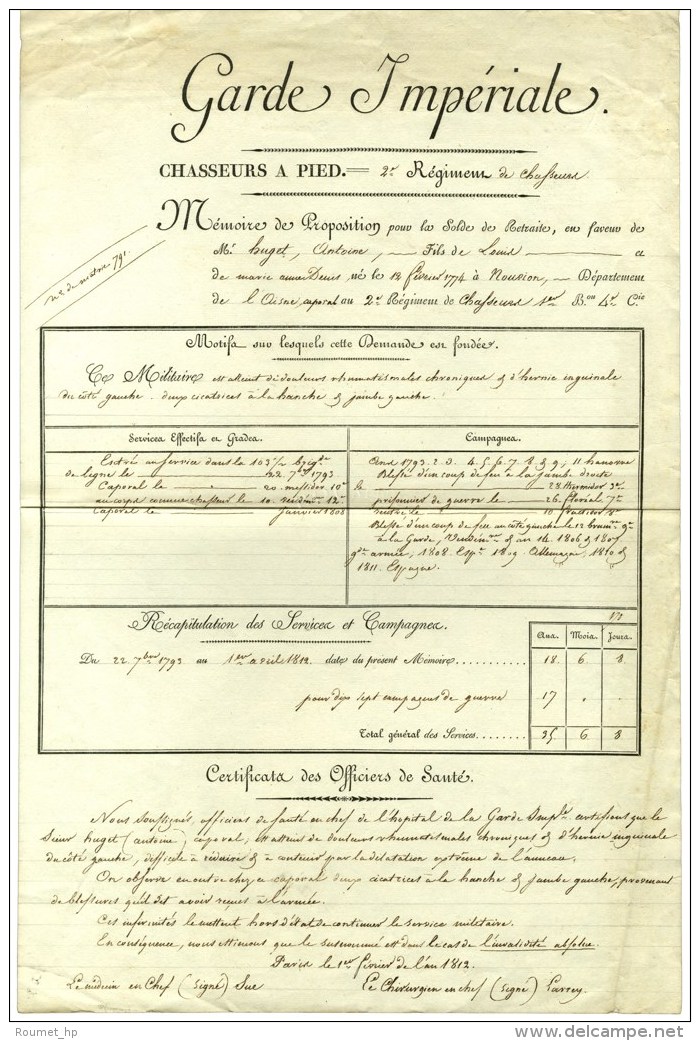 Garde Impériale.
CHASSEURS A PIED. = 2e. Régiment de Chasseurs
Mémoire de Proposition pour la Solde de Retraite, en faveur de
Mr. huget, Antoine, — Fils de Louis — et
de marie anne Denis, né le 12 février 1774 à Nouvion, — Département
de l'Aisne, caporal au 2e. Régiment de Chasseurs 1er Bon 4e. Cie
no. de matre 791.
Motifs sur lesquels cette Demande est fondée.
Ce Militaire est atteint de douleurs rhumatésmales chroniques & d'hernie inguinale
du côté gauche. deux cicatrices à la hanche & jambe gauche.
Services Effectifs et Grades.
Entré au service dans la 103e 1/2 brigde
de ligne le — 22 7bre 1793
Caporal le — 20. messidor 10e
au corps comme chasseur le 10. vendémre 12e
Caporal le — janvier 1808
Campagnes.
And 1793. 2. 3. 4. 5. 6. 7. 8. & 9, 11 hanovre
Blessé d'un coup de feu à la jambe droite
le — 28 thermidor 3e
prisonnier de guerre le — 26. floréal 7e
rentré le — 10 fructidor 8e
Blessé d'un coup de feu au côté gauche le 12 brumre 9e
à la Garde, Vendémre & an 14. 1806 & 1807
gde armée, 1808. Espe. 1809. Allemagne, 1810 &
1811. Espagne.
Récapitulation des Services et Campagnes.
Ans. Mois. Jours.
Du 22 7bre 1793 au 1er avril 1812. date du présent Mémoire 18. 6 8
pour dix sept campagnes de guerre 17 " "
Total général des Services 35 6 8
Certificats des Officiers de Santé.
Nous soussignés, officiers de santé en chef de l'hopital de la Garde Imple. certifions que le
Sieur huget (antoine) caporal, est atteint de douleurs rhumatésmales chroniques & d'hernie inguinale
du côté gauche, difficile à réduire & à contenir par la dilatation extrême de l'anneau.
On observe en outre chez ce caporal deux cicatrices à la hanche & jambe gauche, provenant
de blessures qu'il dit avoir reçues à l'armée.
Ces infirmités le mettent hors d'état de continuer le service militaire.
En conséquence, nous estimons que le susnommé est dans le cas de l'invalidité absolue.
Paris le 1er février de l'an 1812.
Le médecin en Chef (signé) Sue
Le Chirurgien en chef (signé) Larrey.
Roumet_hp
delcampe.net